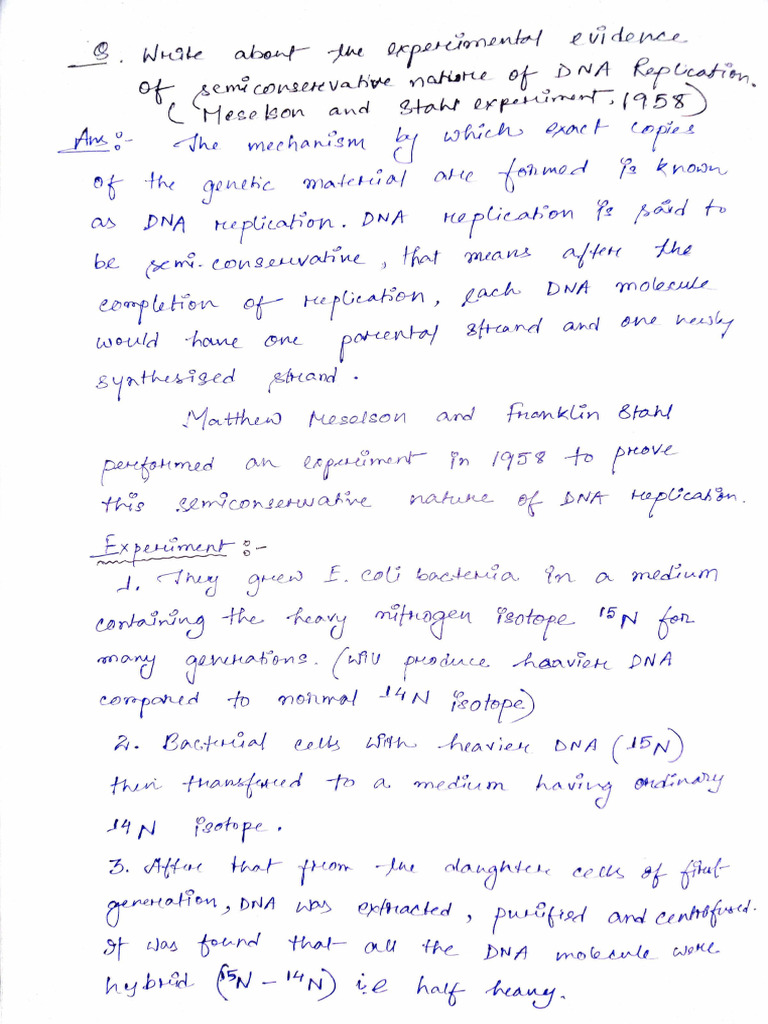 Q. Write about the experimental evidence
of semiconservative nature of DNA Replication.
(Meselson and Stahl experiment, 1958)
Ans:- The mechanism by which exact copies
of the genetic material are formed is known
as DNA replication. DNA replication is said to
be semi-conservative, that means after the
completion of replication, each DNA molecule
would have one parental strand and one newly
synthesised strand.
Matthew Meselson and Franklin Stahl
performed an experiment in 1958 to prove
this semiconservative nature of DNA replication.
Experiment:-
1. They grew E. coli bacteria in a medium
containing the heavy nitrogen isotope 15N for
many generations. (will produce heavier DNA
compared to normal 14N isotope)
2. Bacterial cells with heavier DNA (15N)
then transfered to a medium having ordinary
14N isotope.
3. After that from the daughter cells of first
generation, DNA was extracted, purified and centrifused.
It was found that all the DNA molecule were
hybrid (15N - 14N) i.e half heavy.